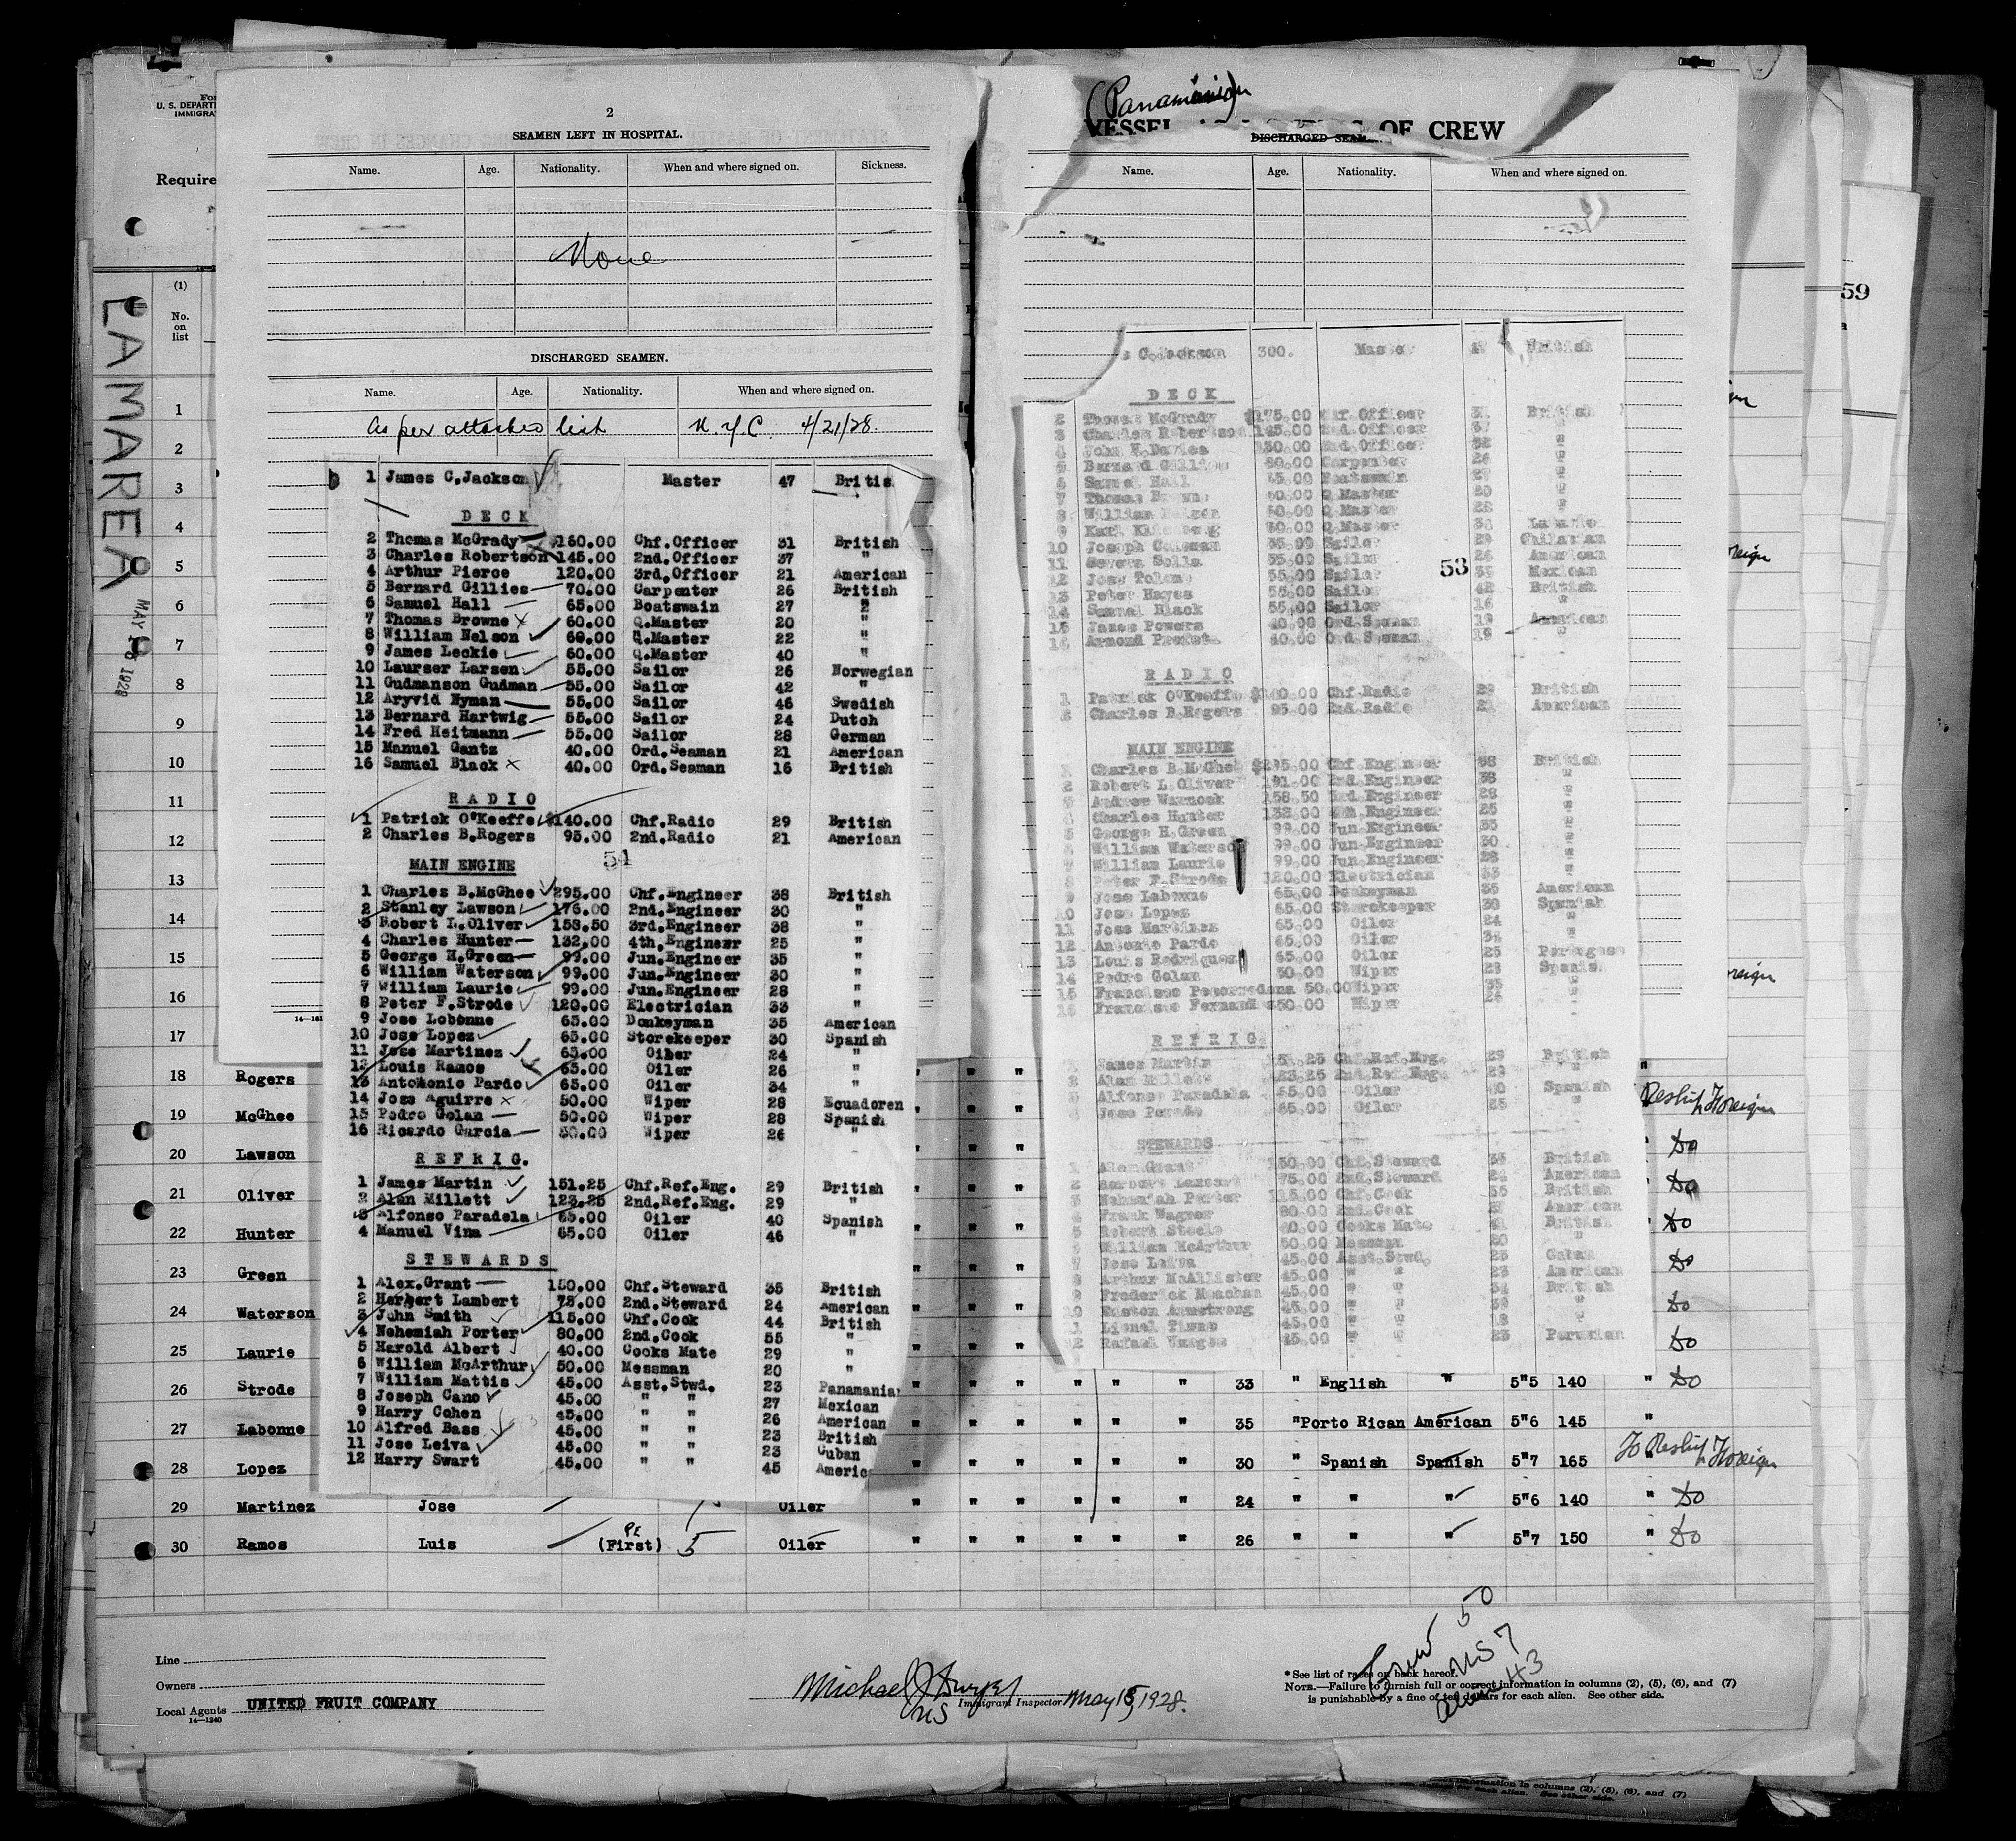 For
U. S. DEPART
IMMIGRA
Require
(1)
No.
on
list
LAMAREA
MAY 16 1928
1
2
3
4
5
6
7
8
9
10
11
12
13
14
15
16
17
2
SEAMEN LEFT IN HOSPITAL.
Name. Age. Nationality. When and where signed on. Sickness.
None
DISCHARGED SEAMEN.
Name. Age. Nationality. When and where signed on.
As per attached list N.Y.C. 4/21/28.
1 James C.Jackson Master 47 Britis
DECK
2 Thomas McGrady $160.00 Chf.Officer 31 British
3 Charles Robertson 145.00 2nd.Officer 37 "
4 Arthur Pierce 120.00 3rd.Officer 21 American
5 Bernard Gillies 70.00 Carpenter 26 British
6 Samuel Hall 65.00 Boatswain 27 "
7 Thomas Browne 60.00 Q.Master 20 "
8 William Nelson 60.00 Q.Master 22 "
9 James Leckie 60.00 Q.Master 40 "
10 Laurser Larsen 55.00 Sailor 26 Norwegian
11 Gudmanson Gudman 55.00 Sailor 42 "
12 Aryvid Nyman 55.00 Sailor 46 Swedish
13 Bernard Hartwig 55.00 Sailor 24 Dutch
14 Fred Heitmann 55.00 Sailor 28 German
15 Manuel Gantz 40.00 Ord.Seaman 21 American
16 Samuel Black 40.00 Ord.Seaman 16 British
RADIO
1 Patrick O'Keeffe $140.00 Chf.Radio 29 British
2 Charles B.Rogers 95.00 2nd.Radio 21 American
54
MAIN ENGINE
1 Charles B.McGhee 295.00 Chf.Engineer 38 British
2 Stanley Lawson 176.00 2nd.Engineer 30 "
3 Robert L.Oliver 158.50 3rd.Engineer 38 "
4 Charles Hunter 132.00 4th.Engineer 25 "
5 George H.Green 99.00 Jun.Engineer 35 "
6 William Waterson 99.00 Jun.Engineer 30 "
7 William Laurie 99.00 Jun.Engineer 28 "
8 Peter F.Strode 120.00 Electrician 33 "
9 Jose Lobonne 65.00 Donkeyman 35 American
10 Jose Lopez 65.00 Storekeeper 30 Spanish
11 Jose Martinez 65.00 Oiler 24 "
12 Louis Ramos 65.00 Oiler 26 "
13 Antomonio Pardo 65.00 Oiler 34 "
14 Jose Aguirre 50.00 Wiper 28 Ecuadoren
15 Pedro Golan 50.00 Wiper 28 Spanish
16 Ricardo Garcia 50.00 Wiper 26 "
REFRIG.
1 James Martin 151.25 Chf.Ref.Eng. 29 British
2 Alan Millett 123.25 2nd.Ref.Eng. 29 "
3 Alfonso Paradela 65.00 Oiler 40 Spanish
4 Manuel Vina 65.00 Oiler 46 "
STEWARDS
1 Alex.Grant 150.00 Chf.Steward 35 British
2 Herbert Lambert 75.00 2nd.Steward 24 American
3 John Smith 115.00 Chf.Cook 44 British
4 Nehemiah Porter 80.00 2nd.Cook 55 "
5 Harold Albert 40.00 Cooks Mate 29 "
6 William McArthur 50.00 Messman 20 "
7 William Mattis 45.00 Asst.Stwd. 23 Panamania
8 Joseph Cano 45.00 " " 27 Mexican
9 Harry Cohen 45.00 " " 26 American
10 Alfred Bass 45.00 " " 23 British
11 Jose Leiva 45.00 " " 23 Cuban
12 Harry Swart 45.00 " " 45 Americ
(Panamanian)
VESSEL OF CREW
DISCHARGED SEAM
Name. Age. Nationality. When and where signed on.
s C.Jackson 300. Master 47 British
DECK
2 Thomas McGrady $175.00 Chf.Officer 31 British
3 Charles Robertson 145.00 2nd.Officer 37 "
4 John Davies 130.00 3rd.Officer "
5 Bernard Gillies 80.00 Carpenter 26 "
6 Samuel Hall 65.00 Boatswain 27 "
7 Thomas Browne 60.00 Q.Master 20 "
8 William 60.00 Q.Master "
9 Karl 60.00 Q.Master
10 Joseph Coleman 55.00 Sailor Chilanian
11 Severo Solis 55.00 Sailor 26 American
12 Jose Toleno 55.00 Sailor Mexican
53
13 Peter Hayes 55.00 Sailor 42 British
14 Samuel Black 55.00 Sailor 16 "
15 James Powers 40.00 Ord.Seaman 19 American
16 Armond 40.00 Ord.Seaman 19 "
RADIO
1 Patrick O'Keeffe $140.00 Chf.Radio 29 British
2 Charles B.Rogers 95.00 2nd.Radio 21 American
MAIN ENGINE
1 Charles B.McGhee $295.00 Chf.Engineer 38 British
2 Robert L.Oliver 191.00 2nd.Engineer 38 "
3 Andrew Warnock 158.50 3rd.Engineer 28 "
4 Charles Hunter 132.00 4th.Engineer 25 "
5 George H.Green 99.00 Jun.Engineer 35 "
6 William Waterson 99.00 Jun.Engineer 30 "
7 William Laurie 99.00 Jun.Engineer 28 "
8 Peter F.Strode 120.00 Electrician 33 "
9 Jose Labonne 65.00 Donkeyman 35 American
10 Jose Lopez 65.00 Storekeeper 30 Spanish
11 Jose Martinez 65.00 Oiler 24 "
12 Antonio Pardo 65.00 Oiler 34 "
13 Louis Rodriquez 65.00 Oiler 25 Portugese
14 Pedro Golan 50.00 Wiper 28 Spanish
15 Francisco 50.00 Wiper 35 "
16 Francisco Fernand 50.00 Wiper 24 "
REFRIG.
James Martin 151.25 Chf.Ref.Eng. 29 British
2 Alan Millett 123.25 2nd.Ref.Eng. 29 "
3 Alfonso Paradela 65.00 Oiler 40 Spanish
4 Jose 65.00 Oiler 25 "
STEWARDS
1 Alex.Grant 150.00 Chf.Steward 35 British
2 Herbert Lambert 75.00 2nd.Steward 24 American
3 Nehemiah Porter 115.00 Chf.Cook 55 British
4 Frank Wagner 80.00 2nd.Cook American
5 Robert Steele 40.00 Cooks Mate British
6 William McArthur 50.00 Messman 20 "
7 Jose Leiva 45.00 Asst.Stwd. 23 Cuban
8 Arthur McAllister 45.00 " " 23 American
9 Frederick Meachan 45.00 " " British
10 Easton Armstrong 45.00 " " "
11 Lionel 45.00 " " 18 "
12 Rafael 45.00 " " 23 Peruvian
59
18 Rogers " " " "
19 McGhee " " " Reship Foreign
20 Lawson " " " Do
21 Oliver " " " Do
22 Hunter " " " Do
23 Green " " " Do
24 Waterson " " " Do
25 Laurie " " " Do
26 Strode " " " " " " 33 " English " 5"5 140 " Do
27 Labonne " " " " " " 35 " Porto Rican American 5"6 145 "
28 Lopez " " " " " " 30 " Spanish Spanish 5"7 165 " To Reship Foreign
29 Martinez Jose Oiler " " " " " " 24 " " " 5"6 140 " Do
30 Ramos Luis PE (First) 5 Oiler " " " " " " 26 " " " 5"7 150 " Do
Line
Owners
Local Agents UNITED FRUIT COMPANY
14—1240
Michael J Dwyer
Immigrant Inspector
May 15, 1928.
Crew 50
US 7
Alien 43
*See list of races on back hereof.
NOTE.—Failure to furnish full or correct information in columns (2), (5), (6), and (7)
is punishable by a fine of ten dollars for each alien. See other side.
information in columns (2), (5), (6), and (7)
for each alien. See other side.